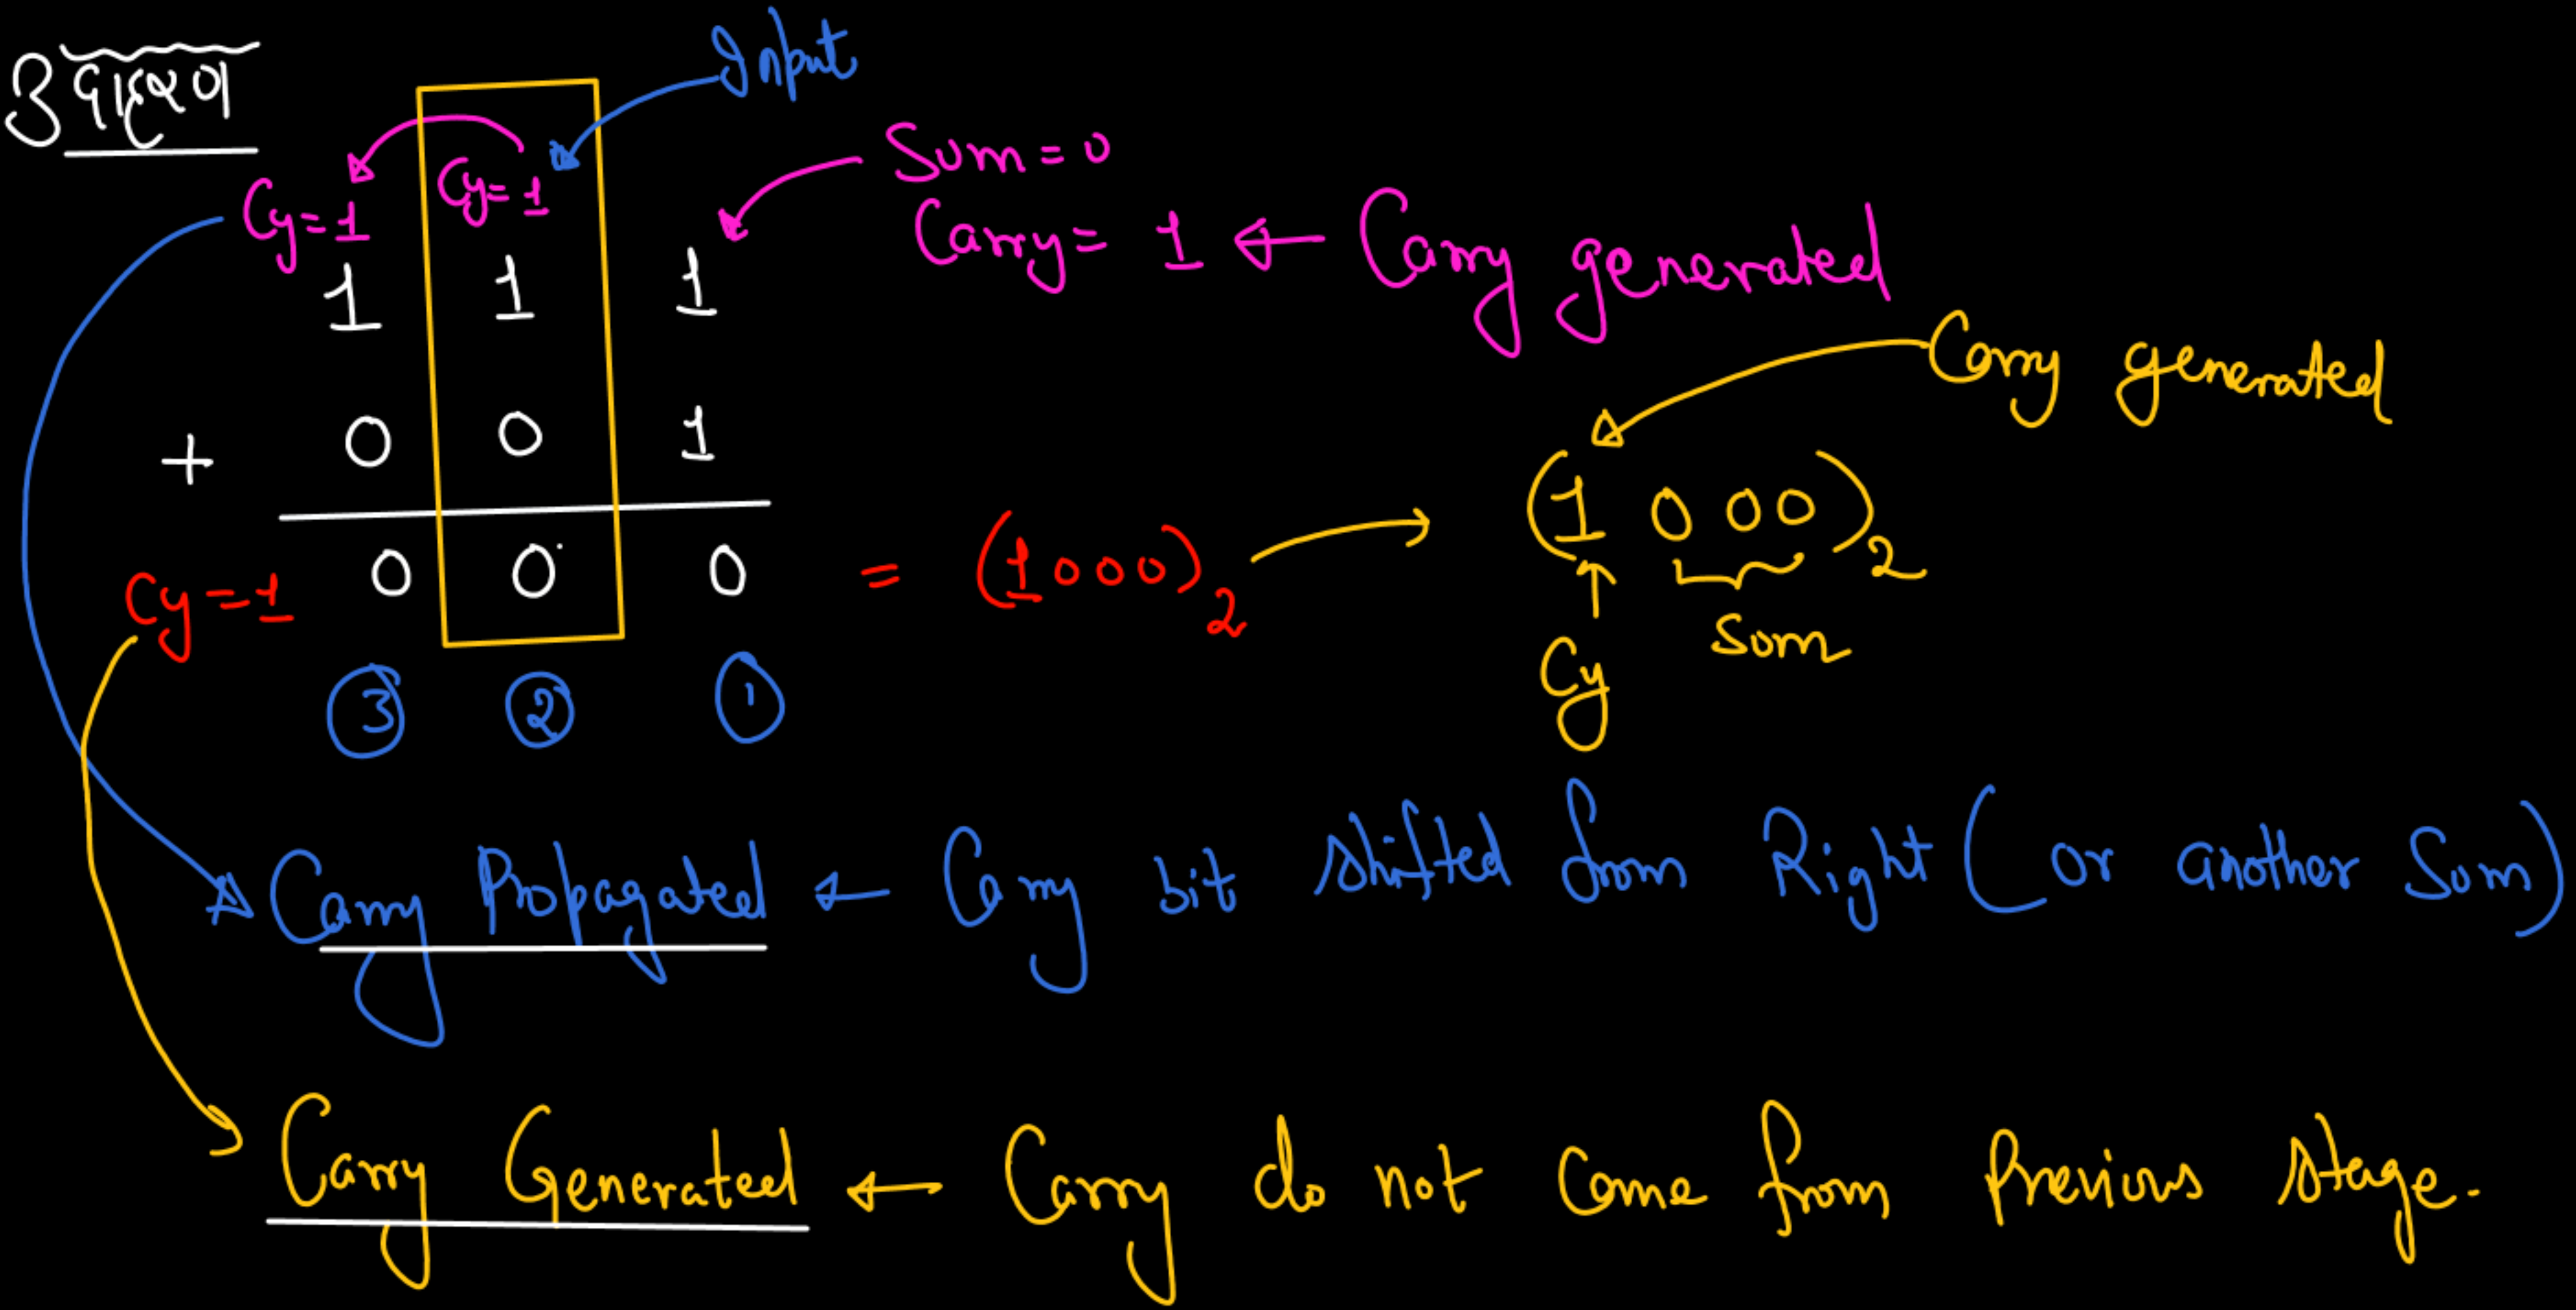 उदाहरण
Input
Cy=1 Cy=1
Sum=0
Carry=1 ← Carry generated
1 1 1
Carry generated
+ 0 0 1
Cy=1 0 0 0 = (1000)2 → (1 000)2
Cy Sum
③ ② ①
Carry Propagated ← Carry bit shifted from Right (or another Sum)
Carry Generated ← Carry do not come from Previous stage.